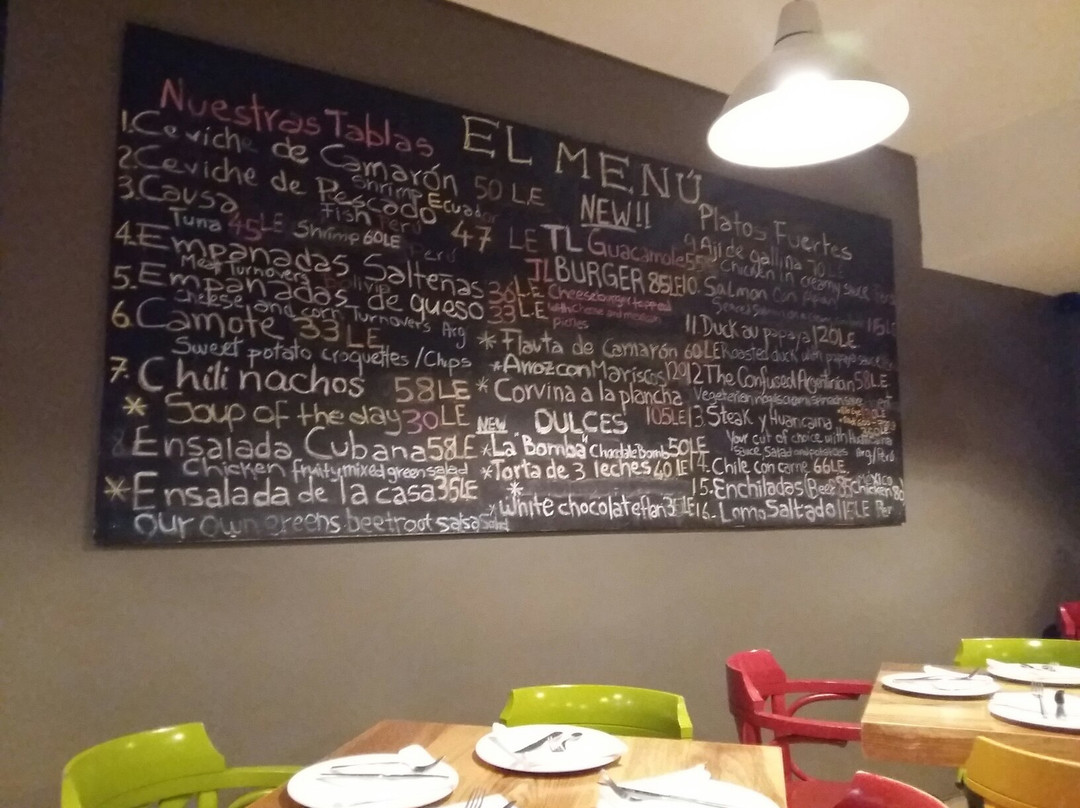 EL MENÚ
Nuestras Tablas
1. Ceviche de Camarón 50 LE
Shrimp Ecuador
2. Ceviche de Pescado 47 LE
fish Peru
3. Causa
Tuna 45LE Shrimp 60LE Perú
4. Empanadas Salteñas 36LE
Meat Turnovers
5. Empanadas de queso 33LE
cheese and corn Turnovers Arg
6. Camote 33 LE
Sweet potato croquettes / Chips
7. Chili nachos 58LE
* Soup of the day 30LE
8 Ensalada Cubana 58LE
Chicken fruity mixed green salad
* Ensalada de la casa 35LE
our own greens beetroot salsa
NEW!!
TL Guacamole
TL BURGER 85LE
Cheeseburger topped
with cheese and
pickles
* Flauta de Camarón 60LE
* Arroz con Mariscos 120
* Corvina a la plancha
105LE
NEW DULCES
* La "Bomba" Chocolate Bomb 50LE
* Torta de 3 leches 40LE
*
White chocolate flan
Platos Fuertes
9 Aji de gallina 70LE
Chicken in creamy sauce
10. Salmon con papaya
115LE
11 Duck au papaya 120LE
Roasted duck with papaya sauce
12 The Confused Argentinian 58LE
Vegetarian
13. Steak y Huancaina
Your cut of choice with Huancaina
sauce, Salad and potatoes Arg/Perú
14. Chile con carne 66LE
Mexico
15. Enchiladas Beef 85 Chicken 80
16- Lomo Saltado 115LE Per